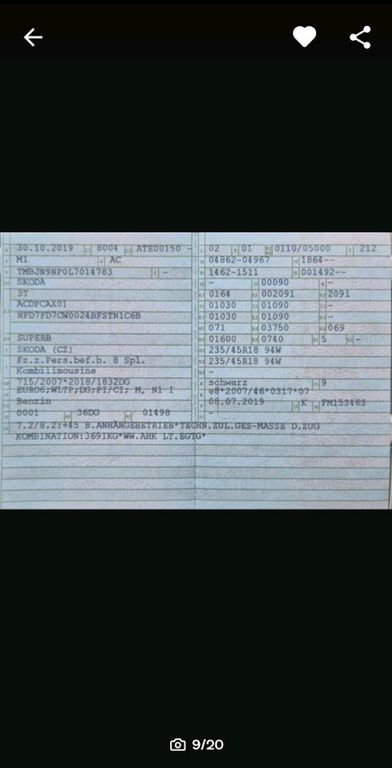 30.10.2019 8004 ATE00150 -
M1 AC
TMBJN9NP0L7014783 -
SKODA
3T
ACDPCAX01
NFD7FD7CW0024BFSTN1C6B
SUPERB
SKODA (CZ)
Fz.z.Pers.bef.b. 8 Spl.
Kombilimousine
715/2007*2018/1832DG
EURO6;WLTP;DG;PI/CI; M, N1 I
Benzin
0001 36DG 01498
02 01 0110/05000 212
04862-04967 1864--
1462-1511 001492--
- 00090 -
0164 002091 2091
01030 01090 -
01030 01090 -
071 03750 069
01600 0740 5 -
235/45R18 94W
235/45R18 94W
-
schwarz 9
e8*2007/46*0317*07
08.07.2019 K FM153463
-
7.2/8.2:+45 B.ANHÄNGEBETRIEB*TECHN.ZUL.GES-MASSE D.ZUG
KOMBINATION:3691KG*WW.AHK LT.EGTG*
9/20